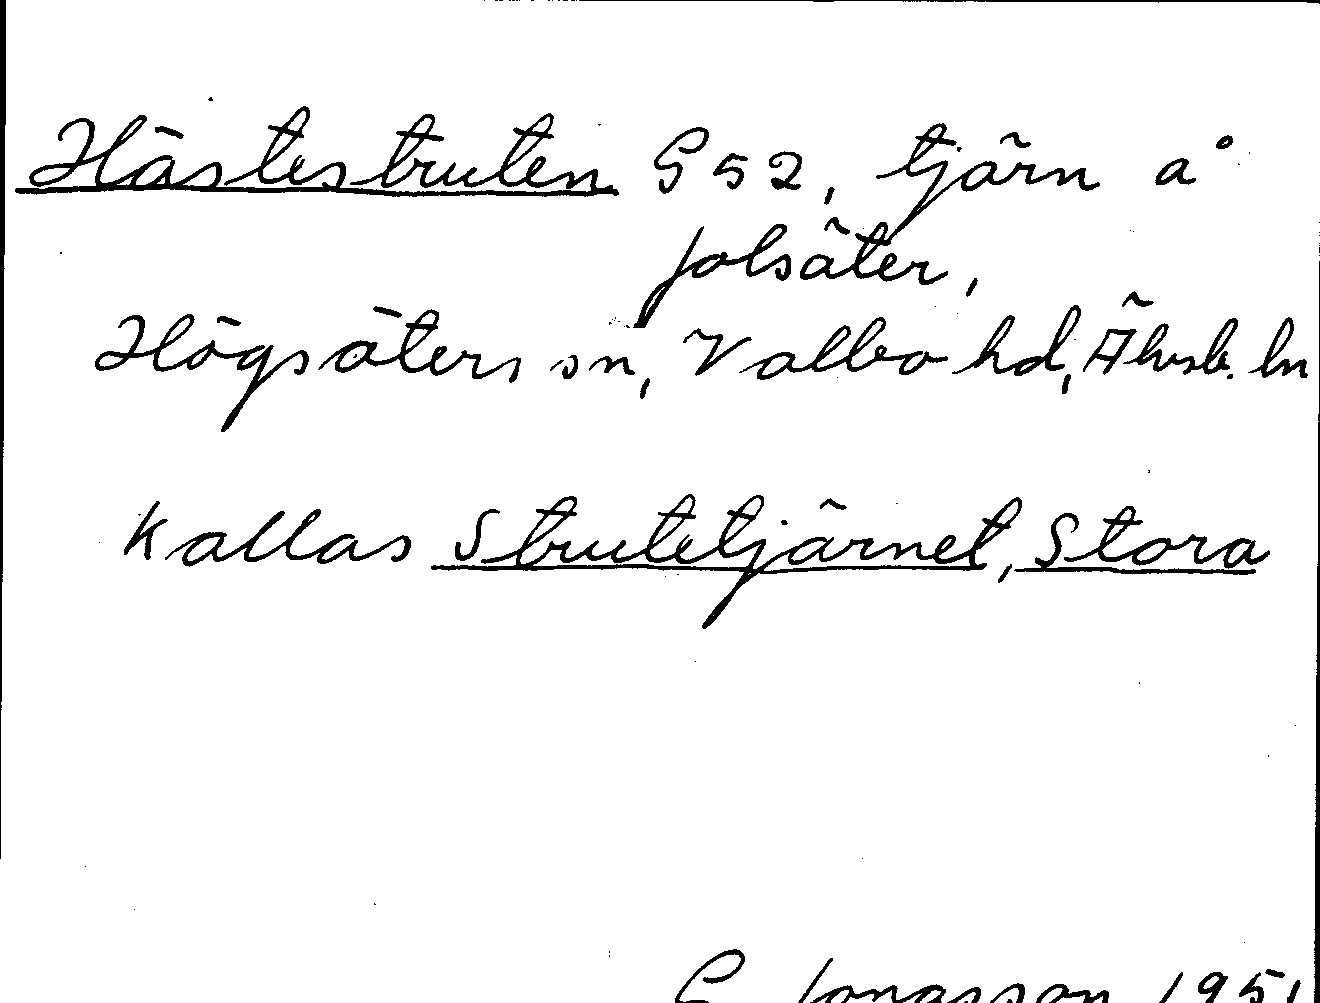 Hästestruten G 52, tjärn å
Jolsäter,
Högsäters sn, Valbo hd, Älvsb. ln
Kallas Strutetjärnet, Stora
G Jonasson 1951